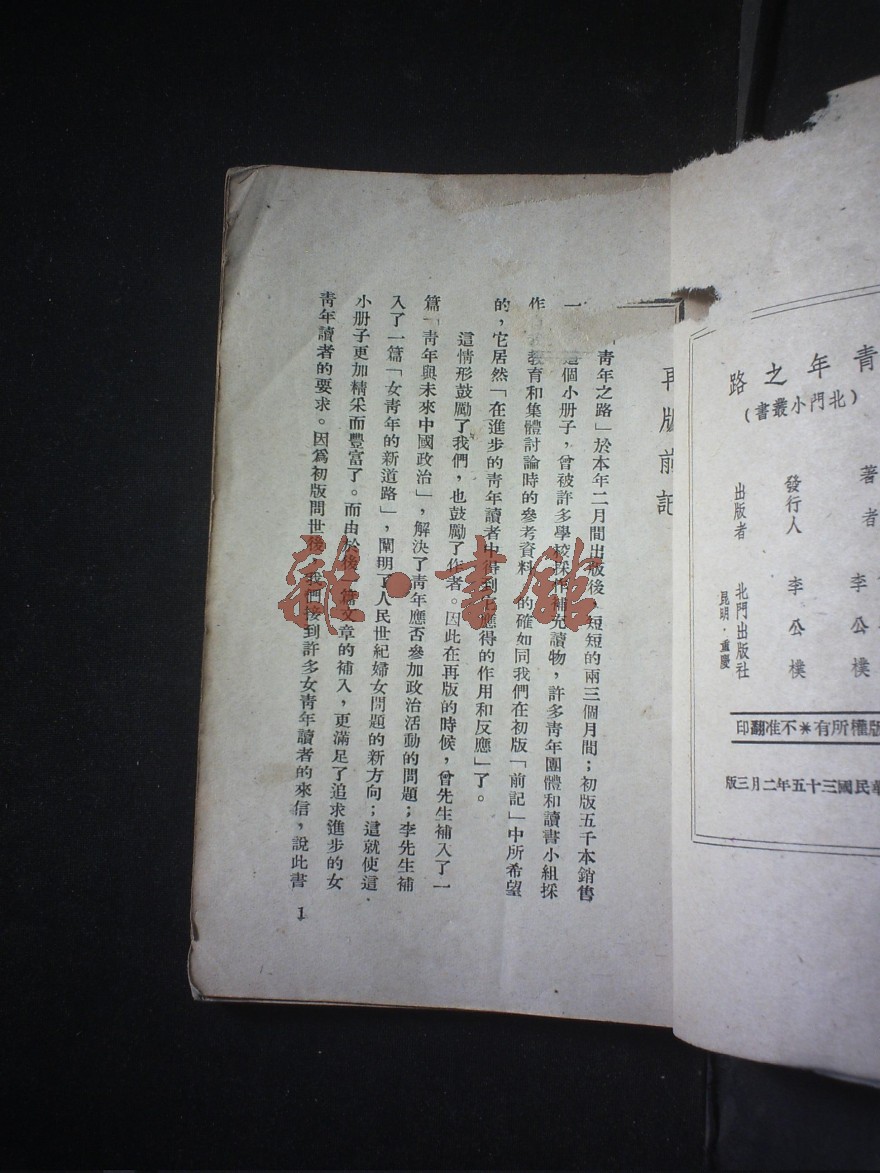 青年之路
(北門小叢書)
著者 李公樸
發行人 李公樸
出版者 北門出版社
昆明·重慶
版權所有＊不准翻印
民國三十五年二月三版
再版前記
青年之路」於本年二月間出版後，短短的兩三個月間；初版五千本銷售
一 這個小册子，曾被許多學校採作補充讀物，許多青年團體和讀書小組採
作 教育和集體討論時的參考資料 的確如同我們在初版「前記」中所希望
的，它居然「在進步的青年讀者中得到它應得的作用和反應」了。
這情形鼓勵了我們，也鼓勵了作者。因此在再版的時候，曾先生補入了一
篇「青年與未來中國政治」，解決了青年應否參加政治活動的問題；李先生補
入了一篇「女青年的新道路」，闡明了人民世紀婦女問題的新方向；這就使這
小册子更加精采而豐富了。而由於後一篇文章的補入，更滿足了追求進步的女
青年讀者的要求。因爲初版問世後，我們接到許多女青年讀者的來信，說此書
1
雜·書館